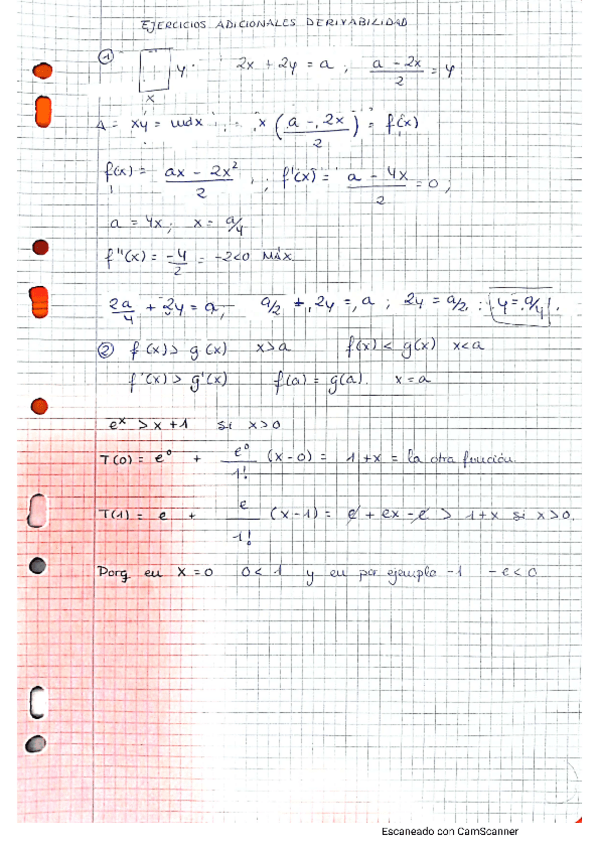 EJERCICIOS ADICIONALES DERIVABILIDAD
① y x 2x + 2y = a ; (a - 2x)/2 = y
A = xy = max ; x ((a - 2x)/2) = f(x)
f(x) = (ax - 2x²)/2 ; f'(x) = (a - 4x)/2 = 0 ;
a = 4x ; x = a/4
f''(x) = -4/2 = -2 < 0 MÁX.
2a/4 + 2y = a, a/2 + 2y = a ; 2y = a/2 ; y = a/4
② f(x) > g(x) x > a f(x) < g(x) x < a
f'(x) > g'(x) f(a) = g(a). x = a
eˣ > x + 1 si x > 0
T(0) = e⁰ + e⁰/1! (x - 0) = 1 + x = la otra función.
T(1) = e + e/1! (x - 1) = e + ex - e > 1 + x si x > 0.
Porq en x = 0 0 < 1 y en por ejemplo -1 -e < 0
Escaneado con CamScanner